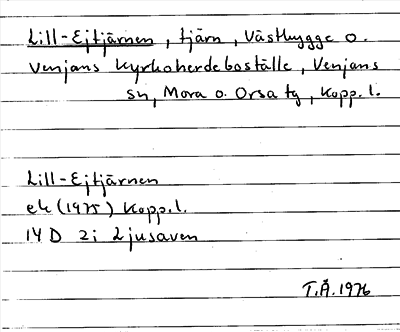 Lill-Ejtjärnen, tjärn, Västbygge o.
Venjans Kyrkoherdeboställe, Venjans
sn, Mora o. Orsa tg, Kopp. l.
Lill-Ejtjärnen
ek (1975) Kopp. l.
14 D 2i Ljusaven
T.Å. 1976